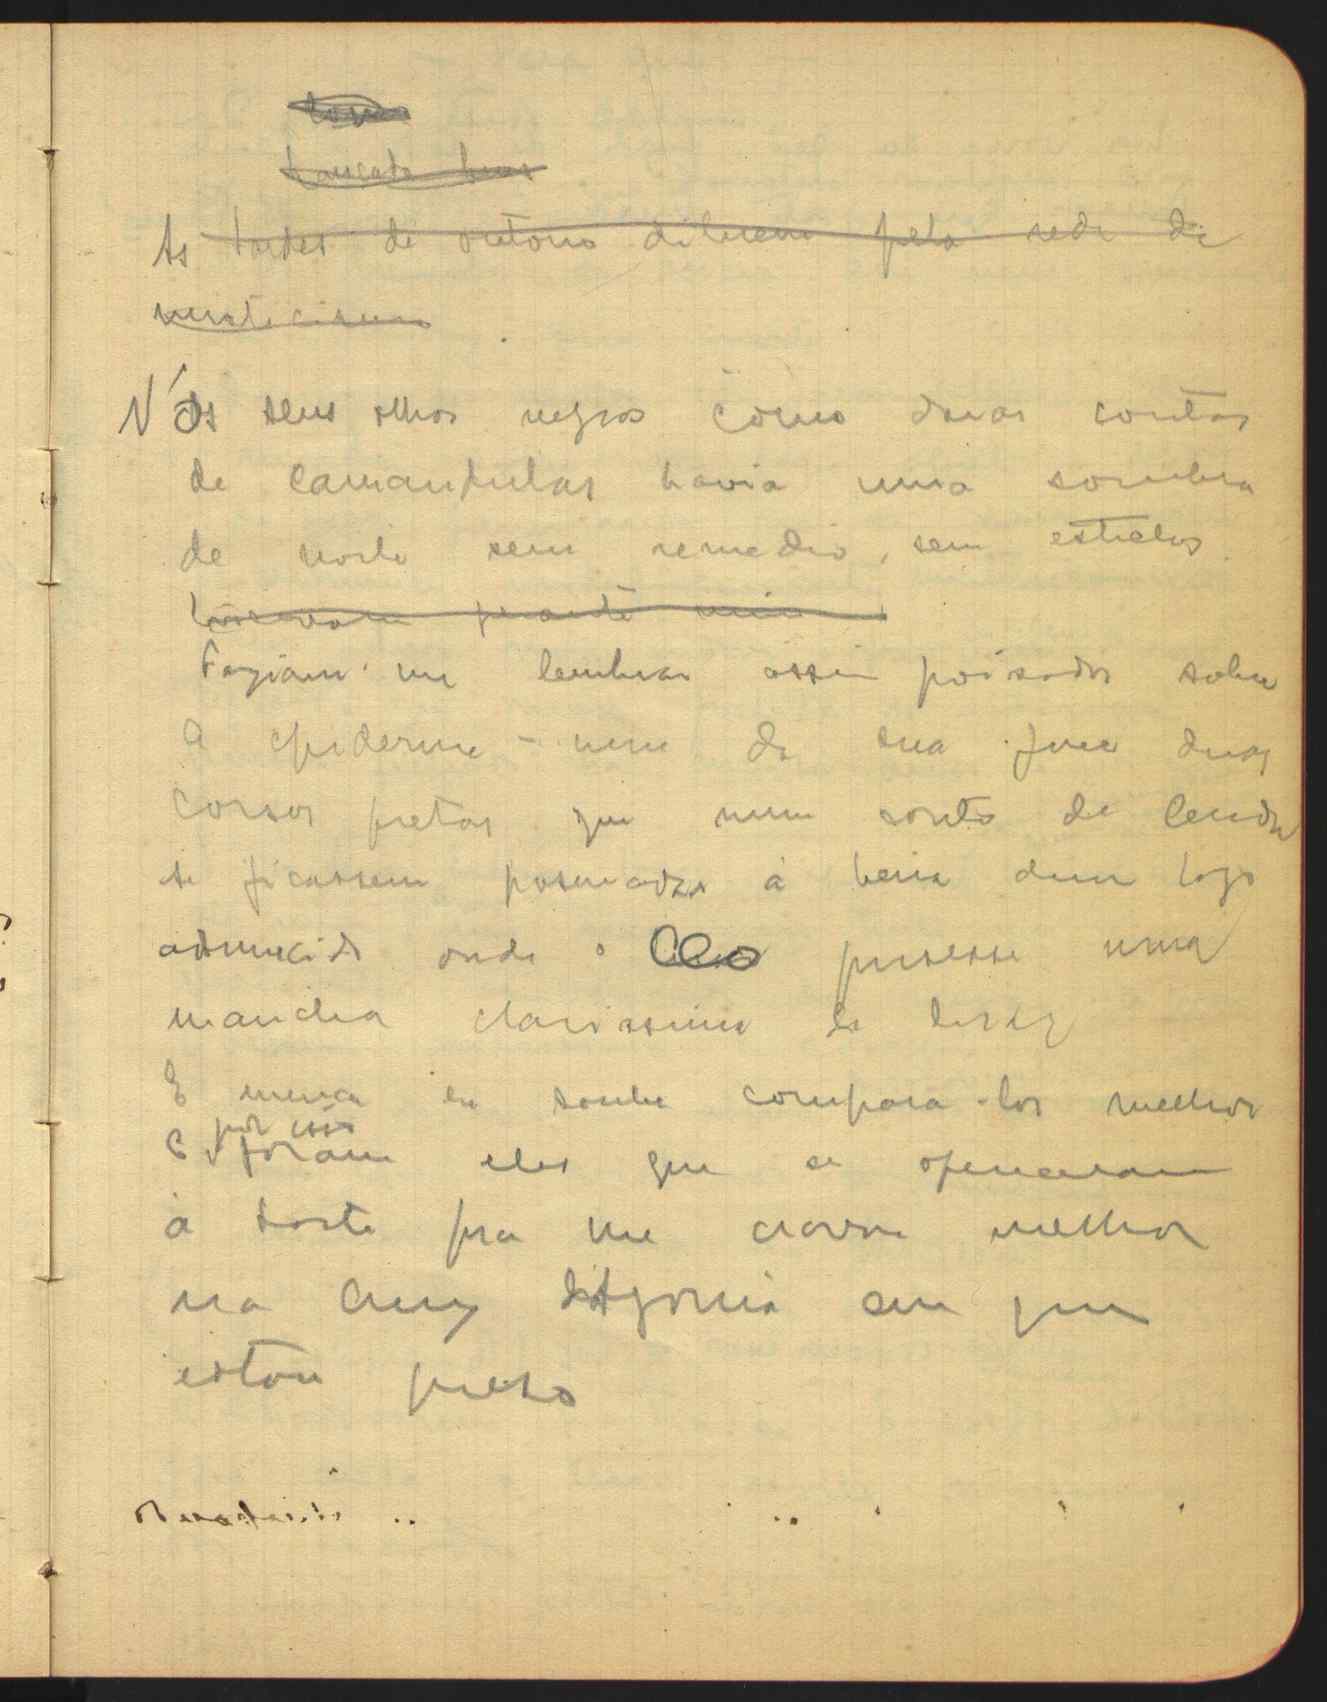 As tardes de outono diluem pela rede de
misticismo
N'os seus olhos negros como duas contas
de camandulas havia uma sombra
de noite sem remedio, sem estrelas
perante mim
Faziam-me lembrar assim poisados sobre
a epiderme - neve da sua face duas
corsas pretas que num souto de lenda
se ficassem pasmadas á beira dum lago
adormecido onde o Ceo pusesse uma
mancha clarissima de luz
E nunca eu soube compara-los melhor
por isso
E foram eles que se ofereceram
á sorte pra me cravar melhor
na Cruz d'Agonia em que
estou preso